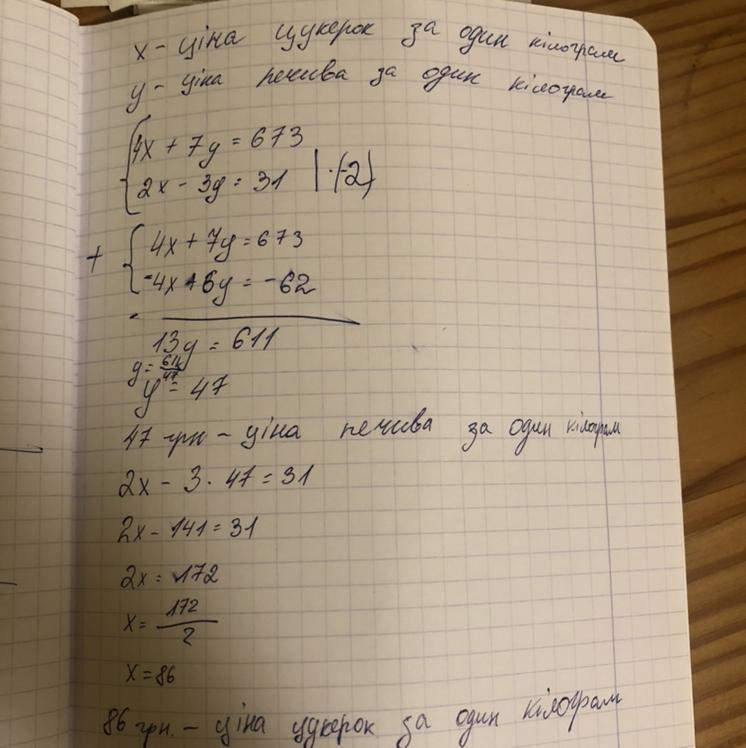 x - ціна цукерок за один кілограм
y - ціна печива за один кілограм
4x + 7y = 673
2x - 3y = 31 | · (-2)
+ 4x + 7y = 673
-4x + 6y = -62
13y = 611
y = 611/47
y = 47
47 грн - ціна печива за один кілограм
2x - 3 · 47 = 31
2x - 141 = 31
2x = 172
x = 172/2
x = 86
86 грн. - ціна цукерок за один кілограм